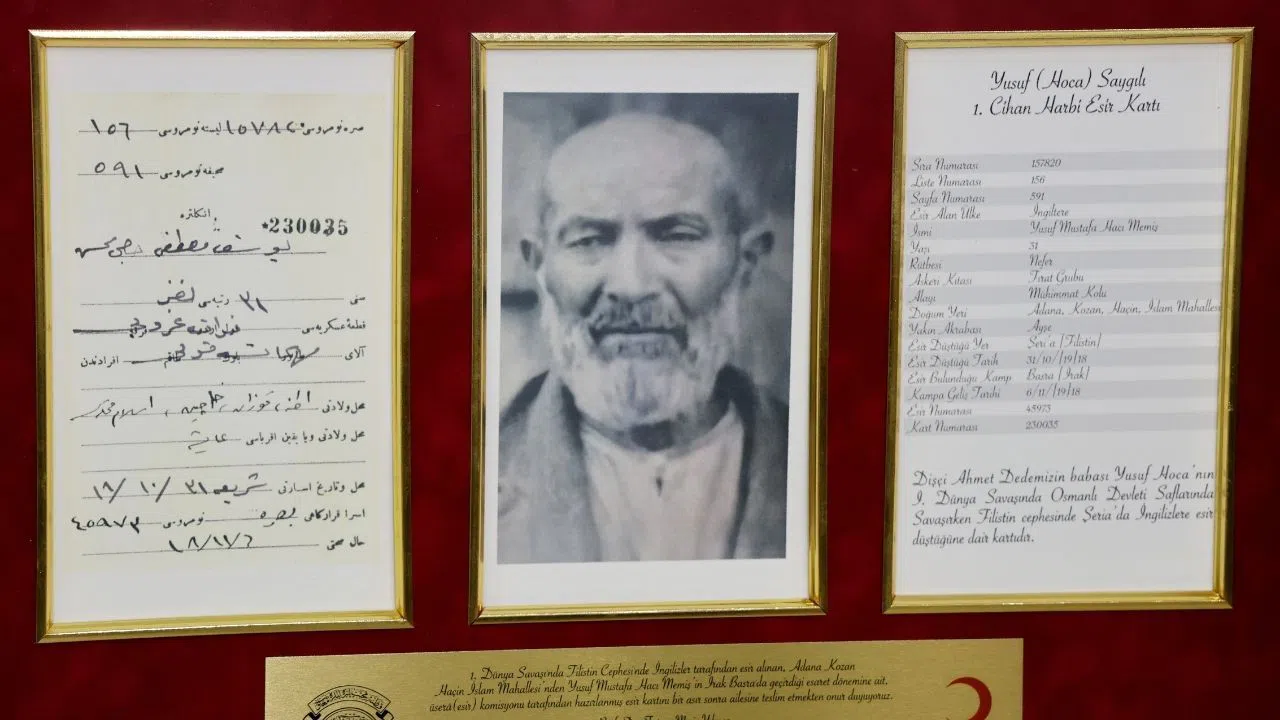 صره نومروسی ١٥٧٨٢٠ لیسته نومروسی ١٥٦
صحیفه نومروسی ٥٩١
انكلتره
*230035
یوسف مصطفی حاجی
سنی ٣١ رتبه‌سی نفر
قطعهٔ عسكریه‌سی
آلای مهمات قولی افرادندن
محل ولادتی اطنه، قوزان، حاچین، اسلام محله‌سی
محل ولادتی ویا یقین اقرباسی عائشه
محل وتاریخ اسارتی شریعه ٣١/ ١٠/ ١٨
اسرا قرارگاهی بصره نومروسی ٤٥٩٧٣
حال صحی ٦/١١/١٨
Yusuf (Hoca) Saygılı
1. Cihan Harbi Esir Kartı
Sıra Numarası 157820
Liste Numarası 156
Sayfa Numarası 591
Esir Alan Ülke İngiltere
İsmi Yusuf Mustafa Hacı Memiş
Yaşı 31
Rütbesi Nefer
Askeri Kıtası Fırat Grubu
Alayı Mühimmat Kolu
Doğum Yeri Adana, Kozan, Haçin, İslam Mahallesi
Yakın Akrabası Ayşe
Esir Düştüğü Yer Şeri'a [Filistin]
Esir Düştüğü Tarih 31/10/[19]18
Esir Bulunduğu Kamp Basra [Irak]
Kampa Geliş Tarihi 6/11/[19]18
Esir Numarası 45973
Kart Numarası 230035
Dişçi Ahmet Dedemizin babası Yusuf Hoca'nın
I. Dünya Savaşında Osmanlı Devleti Saflarında
Savaşırken Filistin cephesinde Şeria'da İngilizlere esir
düştüğüne dair kartıdır.
1. Dünya Savaşı'nda Filistin Cephesi'nde İngilizler tarafından esir alınan, Adana Kozan
Haçin İslam Mahallesi'nden Yusuf Mustafa Hacı Memiş'in Irak Basra'da geçirdiği esaret dönemine ait,
üserâ (esir) komisyonu tarafından hazırlanmış esir kartını bir asır sonra ailesine teslim etmekten onur duyuyoruz.